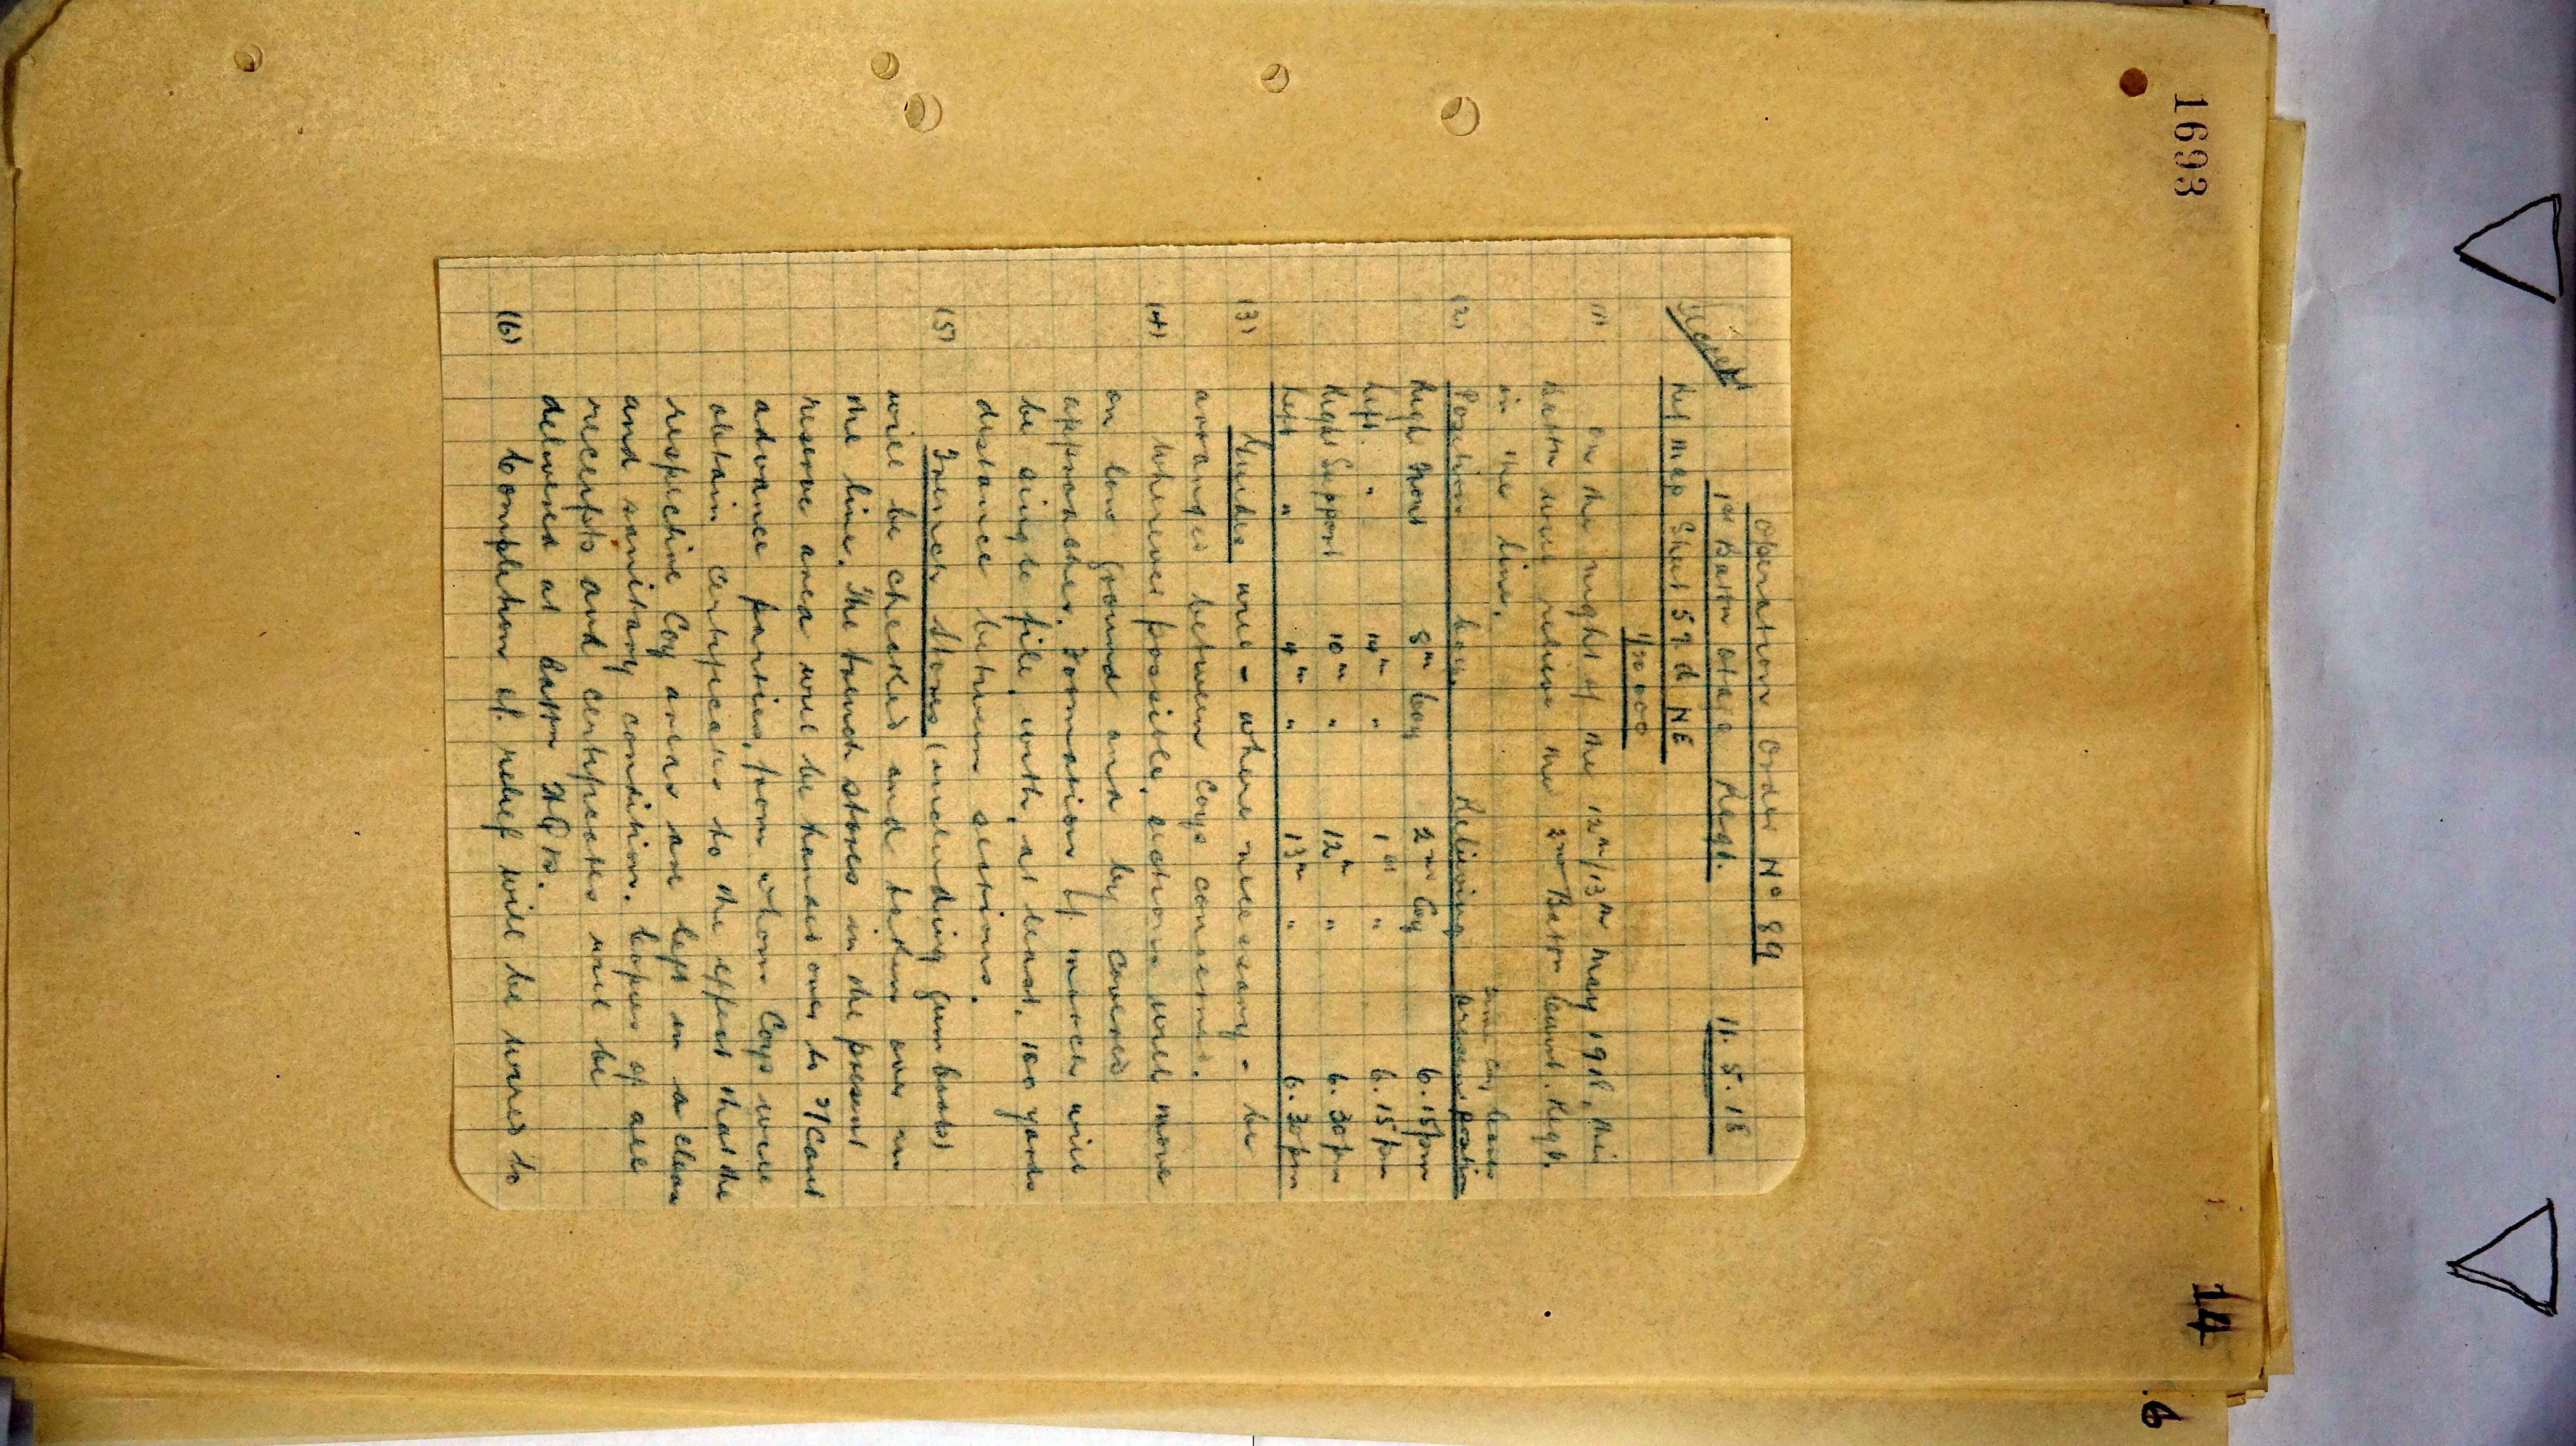 1693
Operation Order No 89
Secret
1st Battn Otago Regt. 11.5.18
Ref Map Sheet 57 d NE
1/20000
(1) On the night of the 12th/13th May 1918, this
Battn will relieve the 2nd Battn Cant. Regt.
in the line.
Time Coy leaves
(2) Position Coy. Relieving present position
Right Front 8th Coy 2nd Coy 6.15 pm
Left " 14th " 1st " 6.15 pm
Right Support 10th " 12th " 6.30 pm
Left " 4th " 13th " 6.30 pm
(3) Guides will - where necessary - be
arranged between Coys concerned.
(4) Wherever possible, sections will move
on low ground and by covered
approaches. Formation of march will
be single file, with, at least, 100 yards
distance between sections.
(5) Trench Stores (including gum boots)
will be checked and taken over in
the line. The trench stores in the present
reserve area will be handed over to 2/Cant
advance parties, from whom Coys will
obtain certificates to the effect that the
respective Coy areas are left in a clean
and sanitary condition. Copies of all
receipts and certificates will be
delivered at Battn HQrs.
(6) Completion of relief will be wired to
14
.6